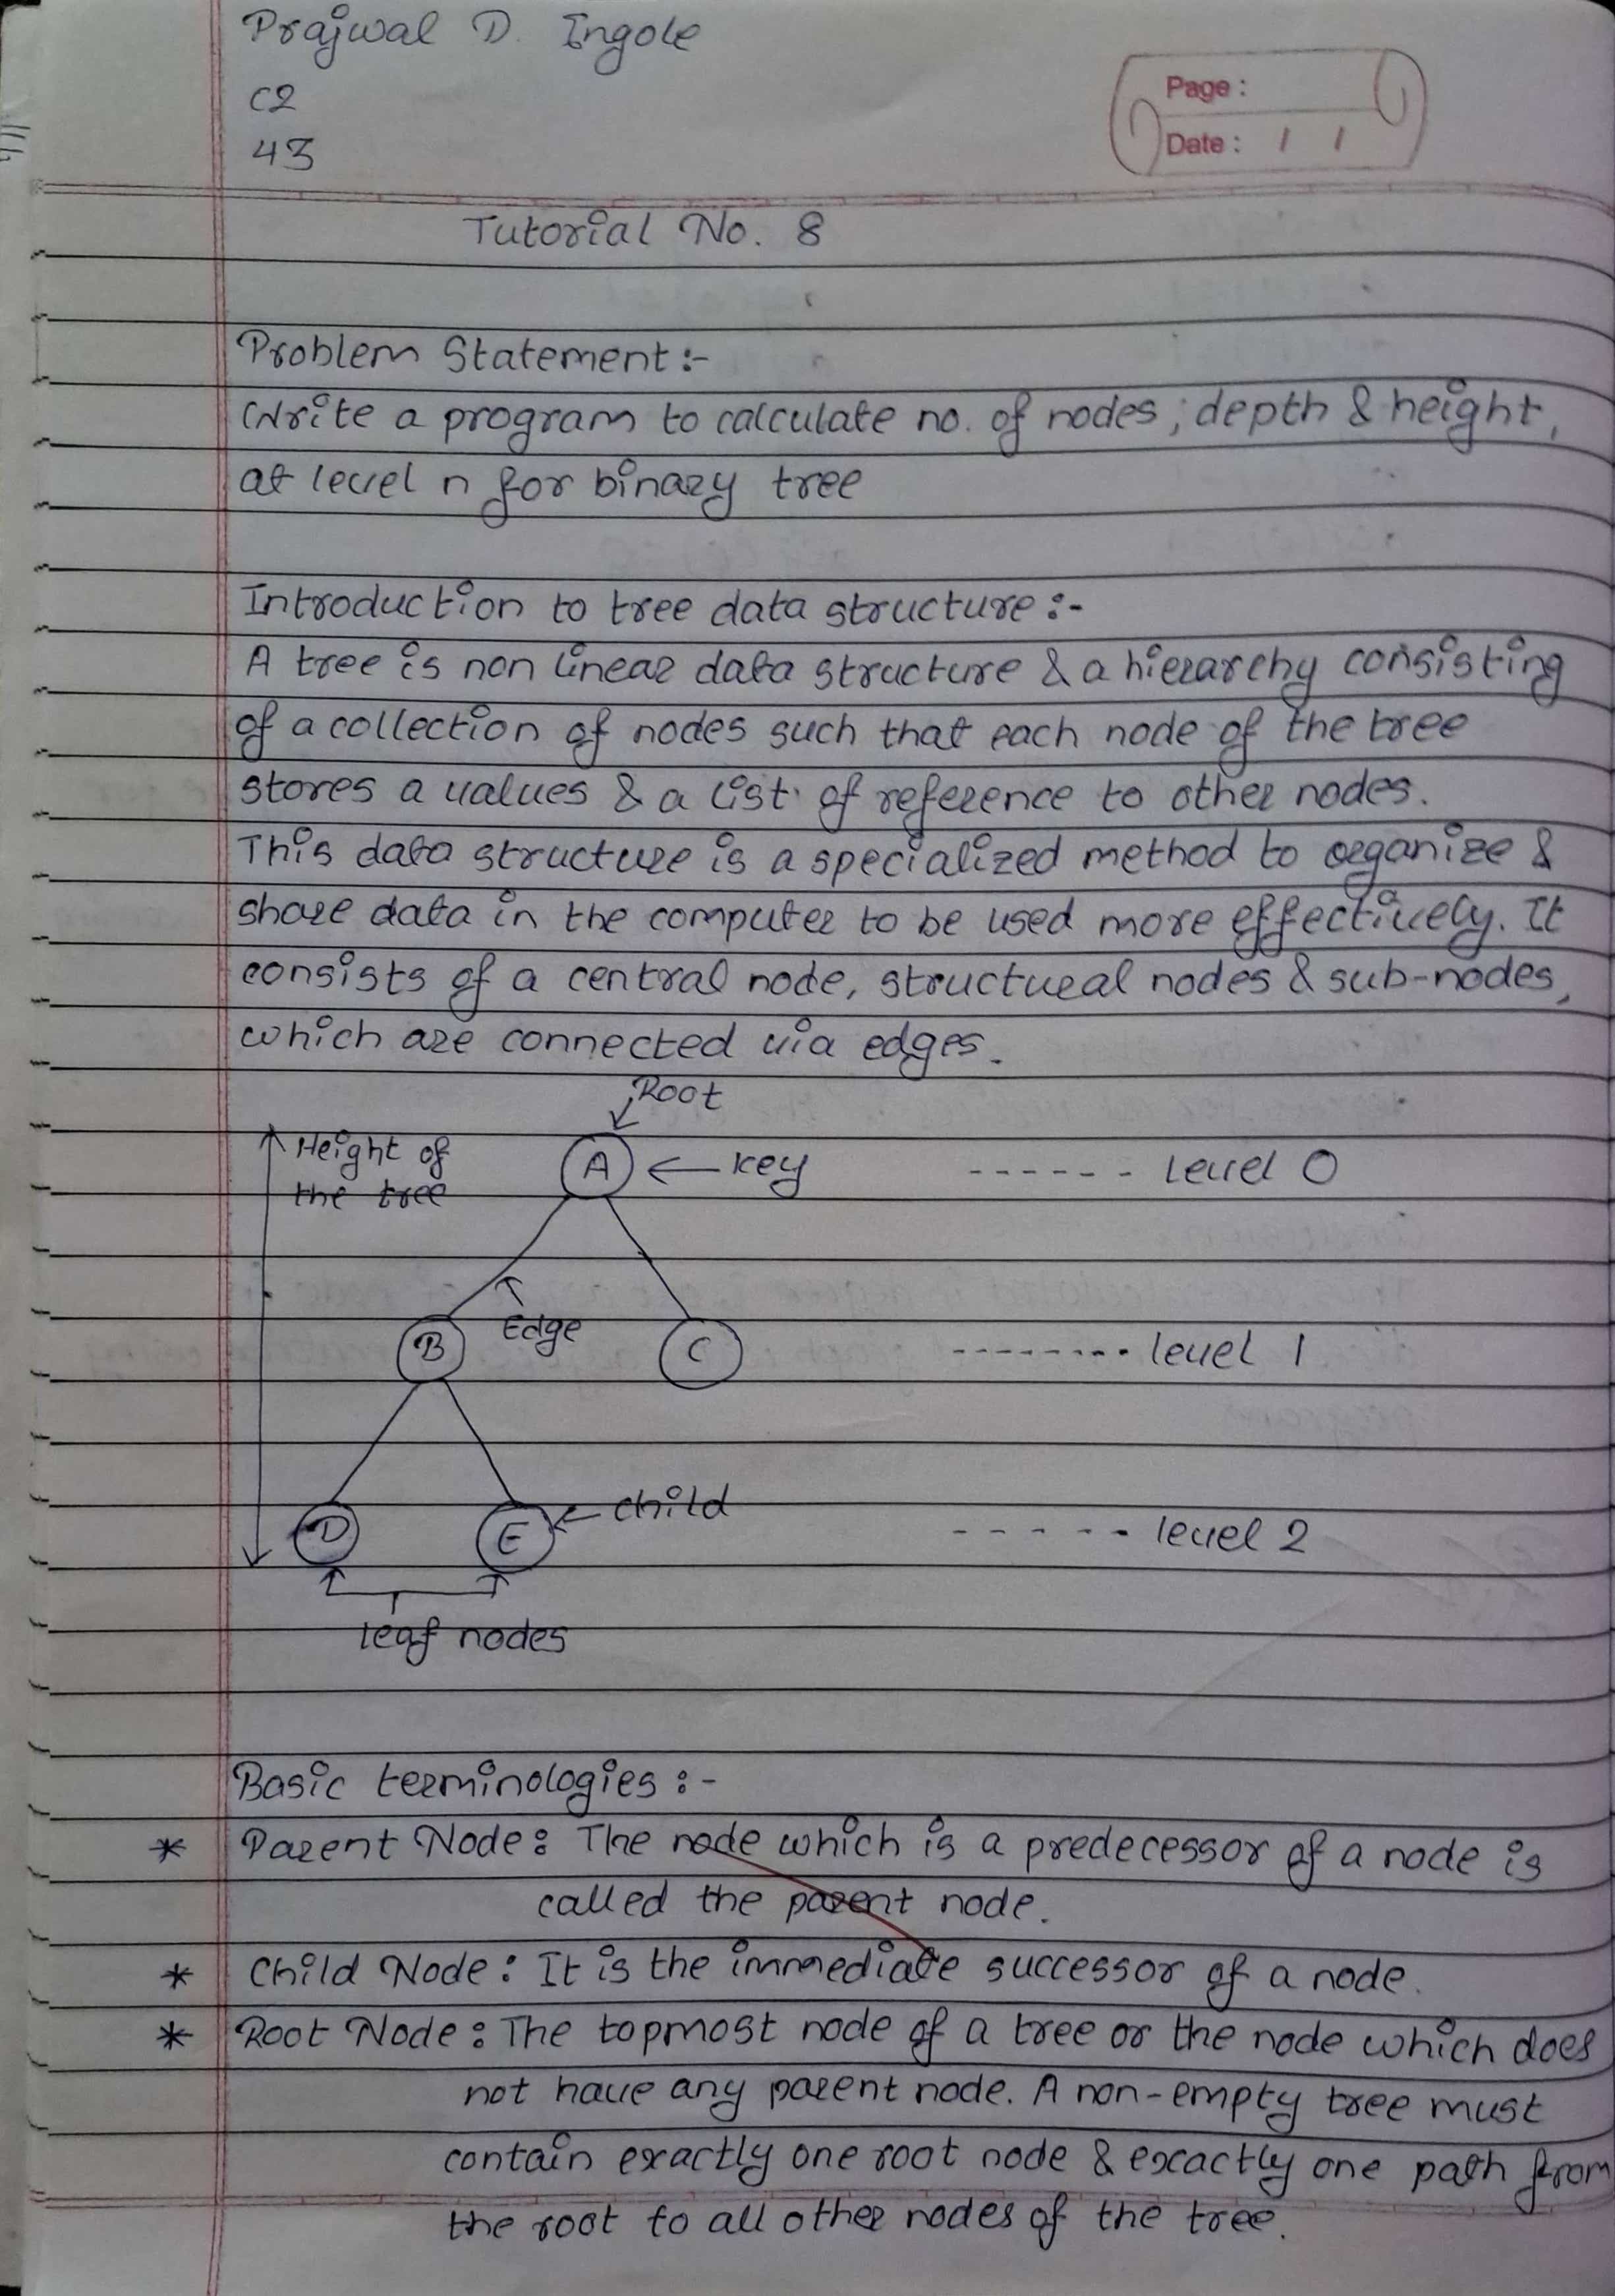 Prajwal D. Ingole
C2
43
Page :
Date : / /
Tutorial No. 8
Problem Statement :-
Write a program to calculate no. of nodes ; depth & height,
at level n for binary tree
Introduction to tree data structure :-
A tree is non linear data structure & a hierarchy consisting
of a collection of nodes such that each node of the tree
stores a values & a list of reference to other nodes.
This data structure is a specialized method to organize &
share data in the computer to be used more effectively. It
consists of a central node, structural nodes & sub-nodes,
which are connected via edges.
Root
Height of
the tree
A
key
------ level 0
Edge
B
C
-------- level 1
child
D
E
----- level 2
leaf nodes
Basic terminologies :-
* Parent Node : The node which is a predecessor of a node is
called the parent node.
* Child Node : It is the immediate successor of a node.
* Root Node : The topmost node of a tree or the node which does
not have any parent node. A non-empty tree must
contain exactly one root node & excactly one path from
the root to all other nodes of the tree.